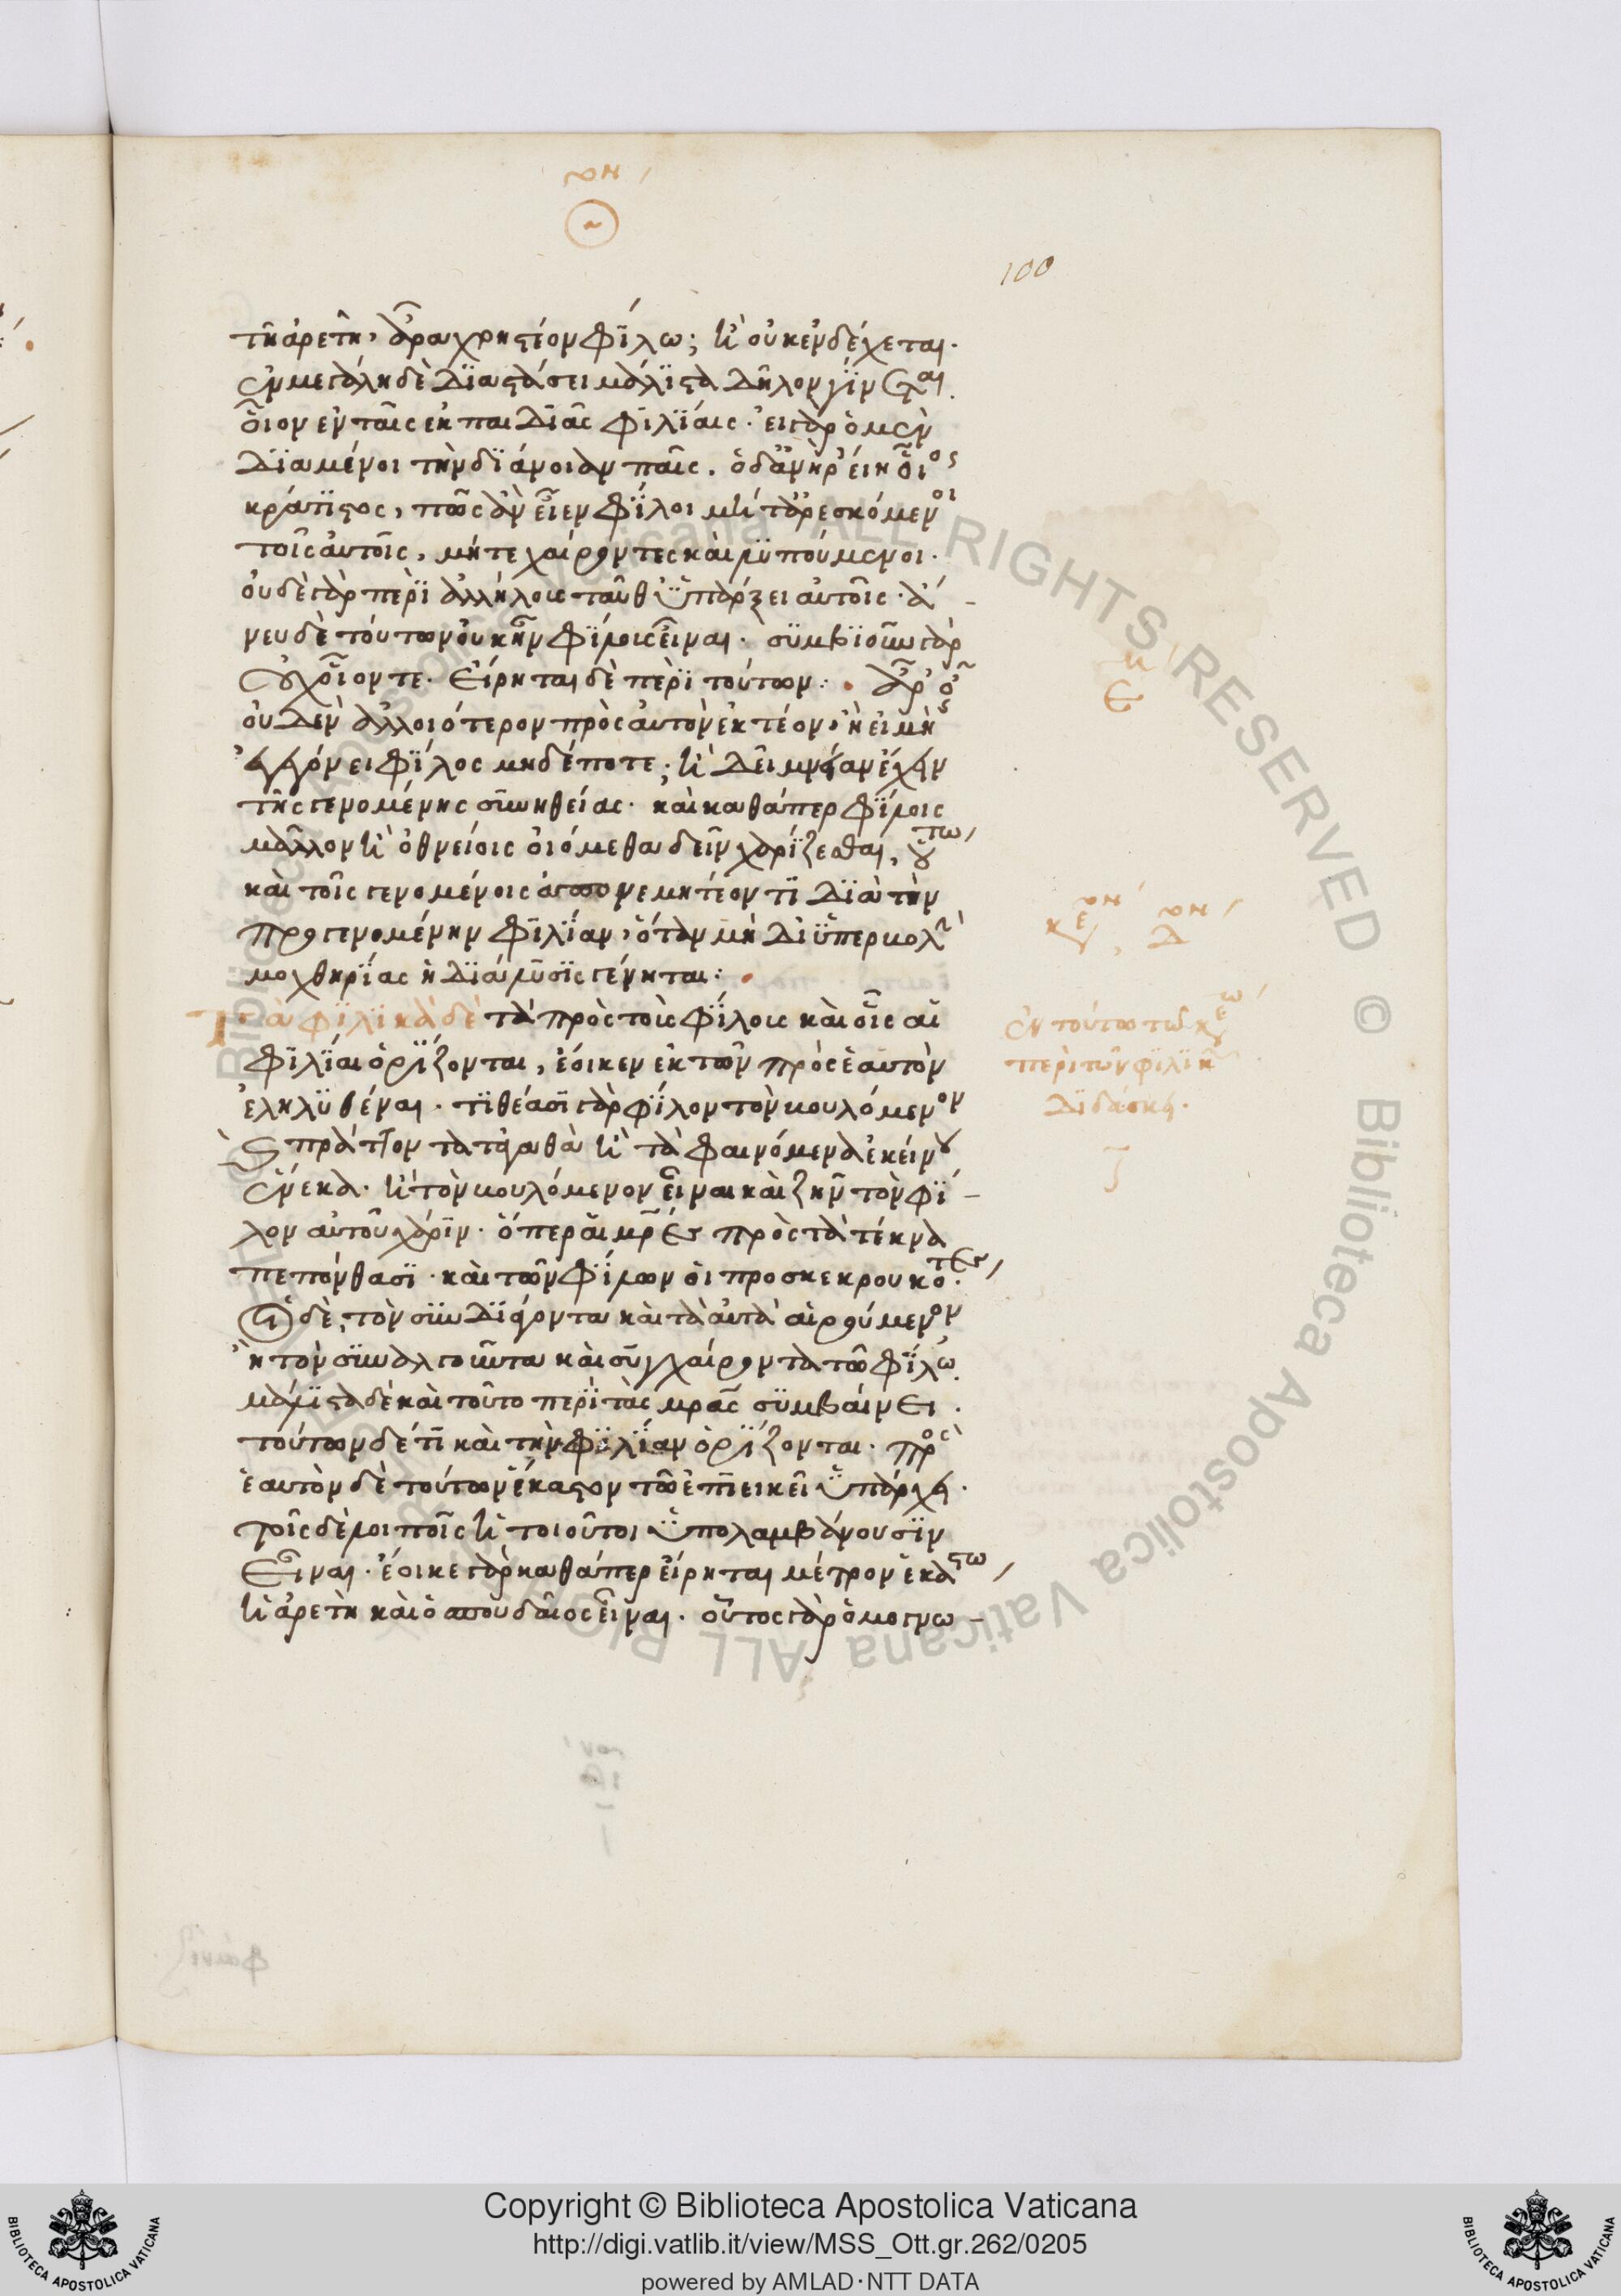 100
τῆ ἀρετῆ, ἆρα χρηστέον φίλω; ἢ οὐκ ἐνδέχεται.
ἐν μεγάλη δὲ διαστάσει μάλιστα δῆλον γίνεται.
οἷον ἐν ταῖς ἐκ παιδίας φιλίαις. εἰ γὰρ ὁ μὲν
διαμένοι τὴν διάνοιαν παῖς. ὁ δ' ἀνὴρ εἴη οἷος
κράτιστος, πῶς ἂν εἶεν φίλοι μήτ' ἀρεσκόμενοι
τοῖς αὐτοῖς, μήτε χαίροντες καὶ λυπούμενοι.
οὐδὲ γὰρ περὶ ἀλλήλους ταῦθ' ὑπάρξει αὐτοῖς. ἄ-
νευ δὲ τούτων οὐκ ἦν φίλους εἶναι. συμβιοῦν γὰρ
οὐχ οἷόν τε. εἴρηται δὲ περὶ τούτων: ἆρ' οὖν
οὐδὲν ἀλλοιότερον πρὸς αὐτὸν ἑκτέον, ἢ εἰ μὴ
ἐγεγόνει φίλος μηδέποτε; ἢ δεῖ μνείαν ἔχειν
τῆς γενομένης συνηθείας. καὶ καθάπερ φίλοις
μᾶλλον ἢ ὀθνείοις οἰόμεθα δεῖν χαρίζεσθαι, οὕτω
καὶ τοῖς γενομένοις ἀπονεμητέον τι διὰ τὴν
προγενομένην φιλίαν, ὅταν μὴ δι' ὑπερβολὴν
μοχθηρίας ἡ διάλυσις γένηται:
Τὰ φιλικὰ δὲ τὰ πρὸς τοὺς φίλους καὶ οἷς αἱ
φιλίαι ὁρίζονται, ἔοικεν ἐκ τῶν πρὸς ἑαυτὸν
ἐληλυθέναι. τιθέασι γὰρ φίλον τὸν βουλόμενον
καὶ πράττοντα τἀγαθὰ ἢ τὰ φαινόμενα ἐκείνου
ἕνεκα. ἢ τὸν βουλόμενον εἶναι καὶ ζῆν τὸν φί-
λον αὐτοῦ χάριν. ὅπερ αἱ μρ͂ες πρὸς τὰ τέκνα
πεπόνθασι. καὶ τῶν φίλων οἱ προσκεκρουκότες.
οἱ δὲ, τὸν συνδιάγοντα καὶ τὰ αὐτὰ αἱρούμενον
ἢ τὸν συναλγοῦντα καὶ συγχαίροντα τῶ φίλω.
μάλιστα δὲ καὶ τοῦτο περὶ τὰς μρ͂ας συμβαίνει.
τούτων δέ τι καὶ τὴν φιλίαν ὁρίζονται. πρὸς
ἑαυτὸν δὲ τούτων ἕκαστον τῶ ἐπιεικεῖ ὑπάρχει.
τοῖς δὲ λοιποῖς ἢ τοιοῦτοι ὑπολαμβάνουσιν
εἶναι. ἔοικε γὰρ καθάπερ εἴρηται μέτρον ἑκάστω
ἡ ἀρετὴ καὶ ὁ σπουδαῖος εἶναι. οὗτος γὰρ ὁμογνω-
ἐν τούτω τῶ κεφ
περὶ τῶν φιλικῶν
διδάσκει.
Copyright © Biblioteca Apostolica Vaticana
http://digi.vatlib.it/view/MSS_Ott.gr.262/0205
powered by AMLAD·NTT DATA
BIBLIOTECA APOSTOLICA VATICANA
BIBLIOTECA APOSTOLICA VATICANA